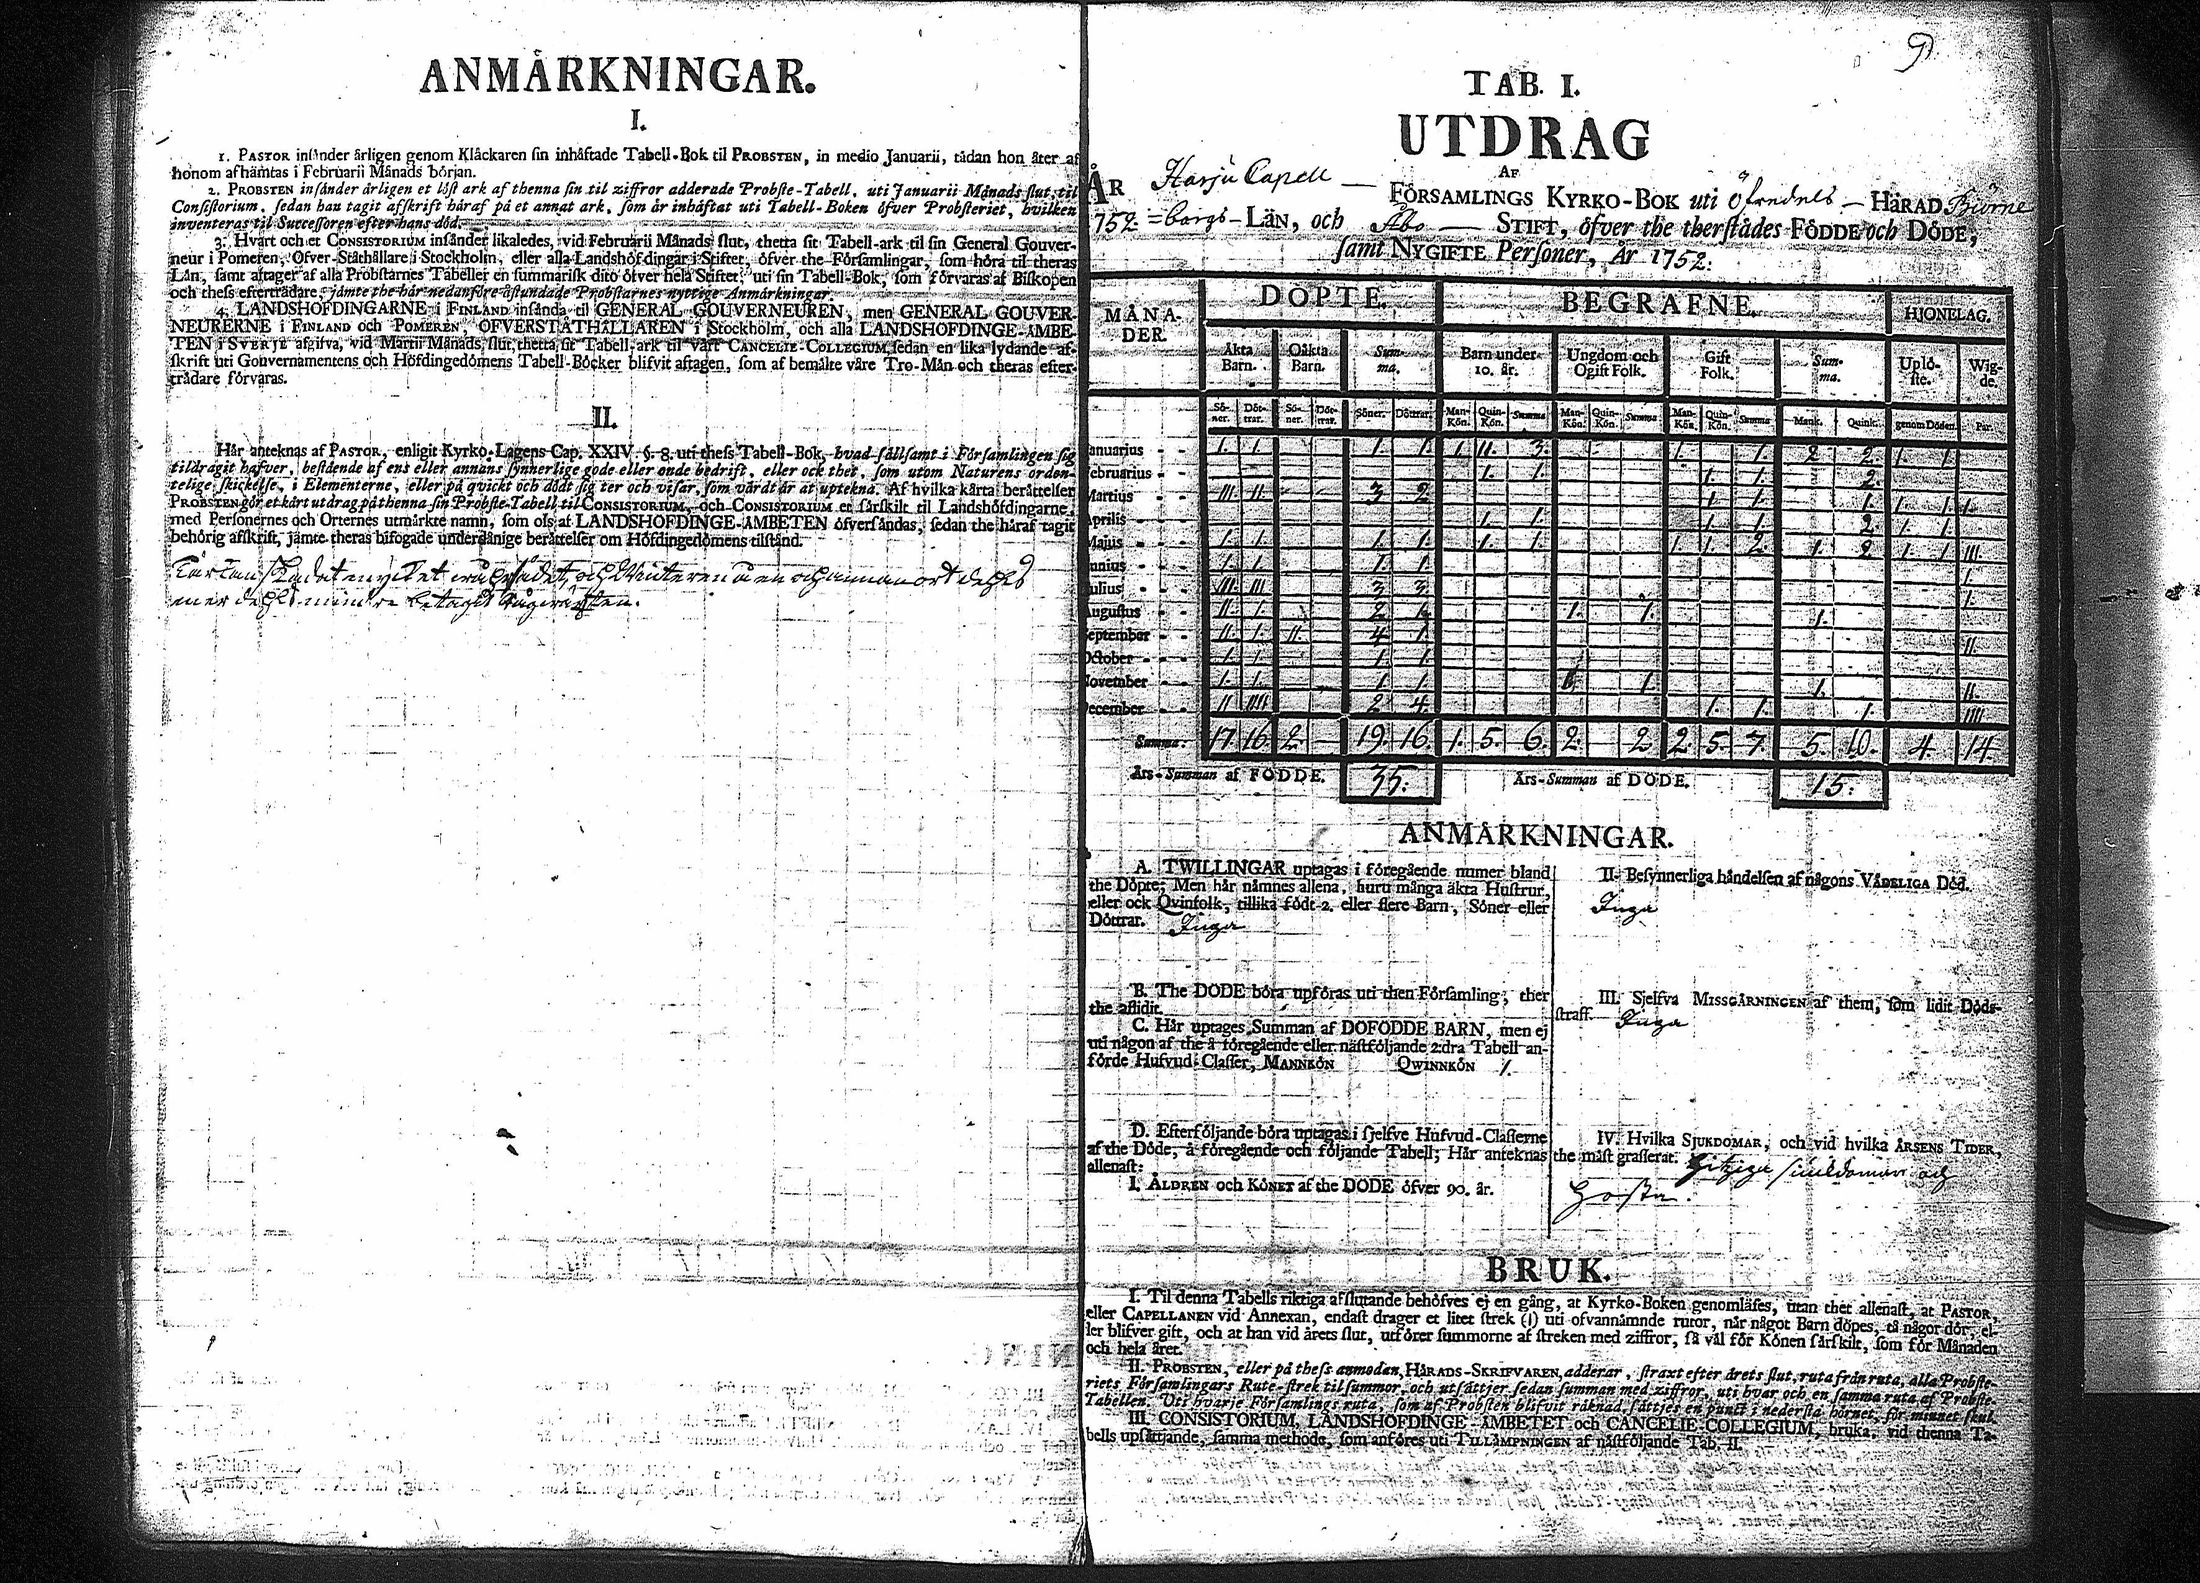 ANMÄRKNINGAR.
I.
1. PASTOR insänder årligen genom Klåckaren sin inhäftade Tabell-Bok til PROBSTEN, in medio Januarii, tådan hon åter af
honom afhämtas i Februarii Månads början.
2. PROBSTEN insänder årligen et löst ark af thenna sin til ziffror adderade Probste-Tabell, uti Januarii Månads slut, til
Consistorium, sedan han tagit afskrift häraf på et annat ark, som är inhäftat uti Tabell-Boken öfver Probsteriet, hvilken
inventeras til Successoren efter hans död.
3. Hvart och et CONSISTORIUM insänder likaledes, vid Februarii Månads slut, thetta sit Tabell-ark til sin General Gouver-
neur i Pomeren, Öfver-Ståthållare i Stockholm, eller alla Landshöfdingar i Stiftet, öfver the Församlingar, som höra til theras
Län, samt aftager af alla Probstarnes Tabeller en summarisk dito öfver hela Stiftet, uti sin Tabell-Bok, som förvaras af Biskopen
och thess efterträdare, jämte the här nedanföre åstundade Probstarnes nyttige Anmärkningar.
4. LANDSHÖFDINGARNE i FINLAND insända til GENERAL GOUVERNEUREN, men GENERAL GOUVER-
NEURERNE i FINLAND och POMEREN, ÖFVERSTÅTHÅLLAREN i Stockholm, och alla LANDSHÖFDINGE-ÄMBE-
TEN i SVERJE afgifva, vid Martii Månads slut, thetta sit Tabell-ark til vårt CANCELIE-COLLEGIUM, sedan en lika lydande af-
skrift uti Gouvernamentens och Höfdingedömens Tabell-Böcker blifvit aftagen, som af bemälte våre Tro-Män och theras efter-
trädare förvaras.
II.
Här anteknas af PASTOR, enligit Kyrko-Lagens Cap. XXIV. §. 8. uti thess Tabell-Bok, hvad sällsamt i Församlingen sig
tildragit hafver, bestående af ens eller annans synnerlige gode eller onde bedrift, eller ock thet, som utom Naturens orden-
telige skickelse, i Elementerne, eller på quickt och dödt sig ter och visar, som värdt är at uptekna. Af hvilka kårta berättelser
PROBSTEN gör et kårt utdrag på thenna sin Probste-Tabell til CONSISTORIUM, och CONSISTORIUM et särskilt til Landshöfdingarne,
med Personernes och Orternes utmärkte namn, som oss af LANDSHÖFDINGE-ÄMBETEN öfversändas, sedan the häraf tagit
behörig afskrift, jämte theras bifogade underdånige berättelser om Höfdingedömens tilstånd.
9
TAB. I.
UTDRAG
AF
ÅR Harju Capell — FÖRSAMLINGS KYRKO-BOK uti Öfredels — HÄRAD Biörne
1752. =borgs — LÄN, och Åbo — STIFT, öfver the therstädes FÖDDE och DÖDE,
samt NYGIFTE Personer, År 1752:
MÅNA-DER. DÖPTE. BEGRAFNE. HJONELAG.
Äkta Barn. Oäkta Barn. Sum-ma. Barn under 10. år. Ungdom och Ogift Folk. Gift Folk. Sum-ma. Uplö-ste. Wig-de.
Sö-ner. Döt-trar. Sö-ner. Döt-trar. Söner. Döttrar. Man-Kön. Quin-Kön. Summa Man-Kön. Quin-Kön. Summa Man-Kön. Quin-Kön. Summa Mank. Quink. genom Döden. Par.
Januarius - - 1. 1. 1. 1. 1. 11. 3. 1. 1. 2. 2. 1. 1.
Februarius - - 1. 1. 1. 1. 2.
Martius - - 111. 11. 3 2 1. 1. 1. 1. 1. 1.
Aprilis - - 1. 1. 1. 1. 2. 1. 1.
Majus - - 1. 1. 1. 1. 1. 1. 1. 1. 2. 1. 2. 1. 1. 111.
Junius - - 1. 1. 1. 1. 1.
Julius - - 111. 111 3 3. 1.
Augustus - - 11. 1. 2 1. 1. 1. 1.
September - - 11. 1. 11. 4. 1. 11.
October - - 1. 1. 1. 1.
November - - 1. 1. 1. 1. 1. 1. 1. 11.
December - - 11 1111 2. 4. 1. 1. 1. 1111
Summa: 17. 16. 2. — 19. 16. 1. 5. 6. 2. — 2 2. 5. 7. 5. 10. 4. 14.
Års-Summan af FÖDDE. 35. Års-Summan af DÖDE. 15.
ANMÄRKNINGAR.
A. TWILLINGAR uptagas i föregående numer bland
the Döpte; Men här nämnes allena, huru många äkta Hustrur,
eller ock Qvinfolk, tillika födt 2. eller flere Barn, Söner eller
Döttrar. Inga
B. The DÖDE böra upföras uti then Församling, ther
the aflidit.
C. Här uptages Summan af DÖFÖDDE BARN, men ej
uti någon af the å föregående eller nästföljande 2:dra Tabell an-
förde Hufvud-Classer, MANNKÖN QWINNKÖN 1.
D. Efterföljande böra uptagas i sjelfve Hufvud-Classerne
af the Döde, å föregående och följande Tabell; Här anteknas
allenast:
I. ÅLDREN och KÖNET af the DÖDE öfver 90. år.
II. Besynnerliga händelsen af någons VÅDELIGA Död.
Inga
III. Sjelfva MISSGÄRNINGEN af them, som lidit Döds-
straff. Inga
IV. Hvilka SJUKDOMAR, och vid hvilka ÅRSENS TIDER,
the mäst grasserat. Hitziga siukdomar och
Hosta.
BRUK.
I. Til denna Tabells riktiga afslutande behöfves ej en gång, at Kyrko-Boken genomläses, utan thet allenast, at PASTOR,
eller CAPELLANEN vid Annexan, endast drager et litet strek (|) uti ofvannämnde rutor, när något Barn döpes, tå någor dör, el-
ler blifver gift, och at han vid årets slut, utförer summorne af streken med ziffror, så väl för Könen särskilt, som för Månaden
och hela året.
II. PROBSTEN, eller på thess anmodan, HÄRADS-SKRIFVAREN, adderar, straxt efter årets slut, ruta från ruta, alla Probste-
riets Församlingars Rute-strek til summor, och utsättjer sedan summan med ziffror, uti hvar och en samma ruta af Probste-
Tabellen. Uti hvarje Församlings ruta, som af Probsten blifvit räknad, sättjes en punct i nedersta hörnet, för minnet skul.
III. CONSISTORIUM, LANDSHÖFDINGE-ÄMBETET och CANCELIE-COLLEGIUM, bruka, vid thenna Ta-
bells upsättjande, samma methode, som anföres uti TILLÄMPNINGEN af nästföljande Tab. II.